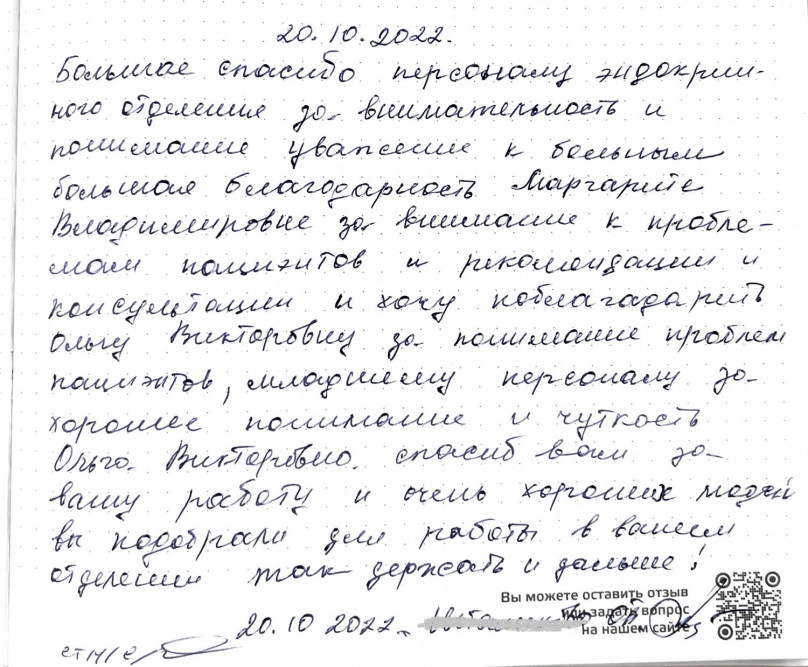 20.10.2022.
Большае спасибо персоналу эндокрин-
ного отделения за внимательность и
понимание уважение к больным
большая благодарность Маргарите
Владимировне за внимание к пробле-
мам пациэнтов и рекомендации и
консультации и хочу поблагадарить
Ольгу Викторовну за понимание проблем
пациэнтов, младшему персоналу за
хорошее понимание и чуткость
Ольга Викторовна спасиб вам за
вашу работу и очень хороших людей
вы подобрали для работы в вашем
отделении так держать и дальше!
Вы можете оставить отзыв
или задать вопрос
на нашем сайте
20.10 2022.